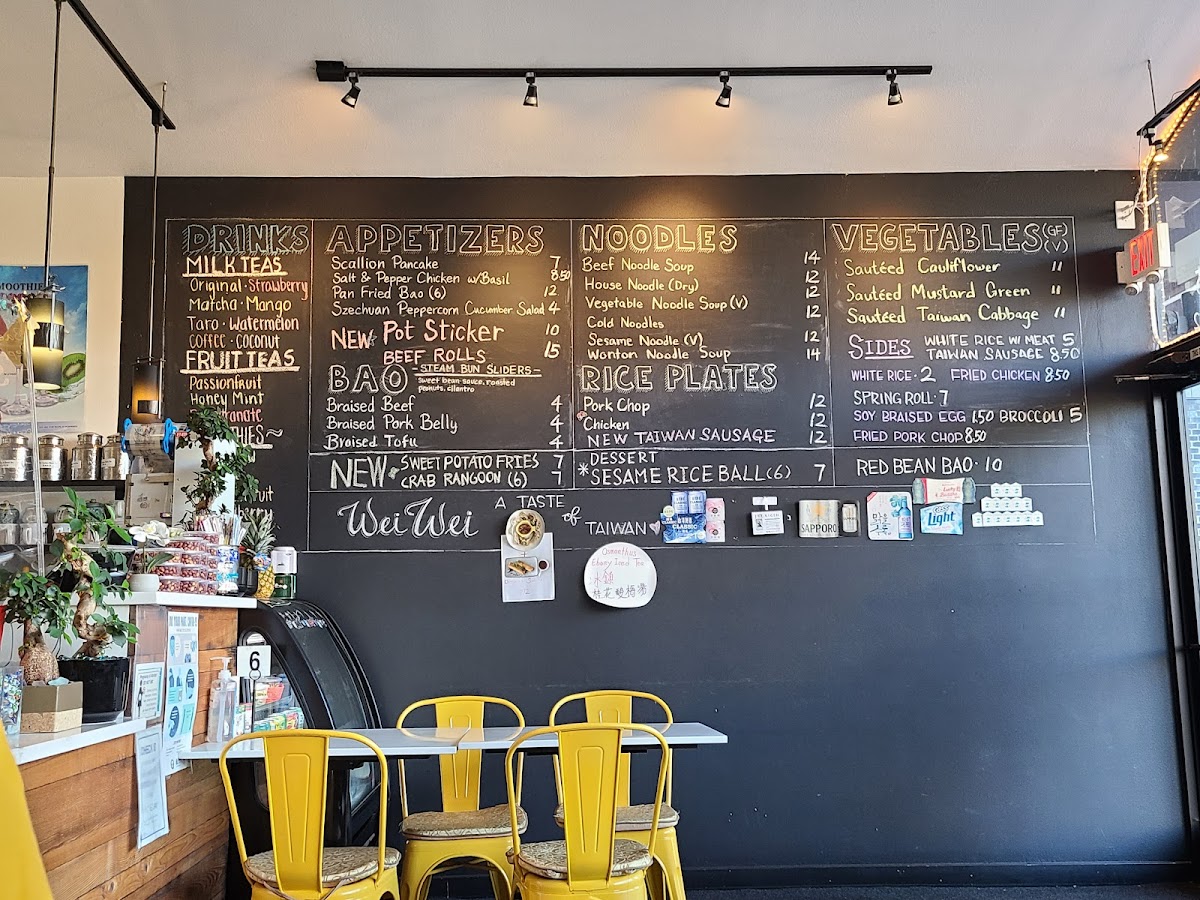 DRINKS
MILK TEAS
Original · Strawberry
Matcha · Mango
Taro · Watermelon
COFFEE · COCONUT
FRUIT TEAS
Passionfruit
Honey Mint
APPETIZERS
Scallion Pancake 7
Salt & Pepper Chicken w/Basil 8.50
Pan Fried Bao (6) 12
Szechuan Peppercorn Cucumber Salad 4
NEW* Pot Sticker 10
BEEF ROLLS 15
BAO - STEAM BUN SLIDERS -
sweet bean sauce, roasted
peanuts, cilantro
Braised Beef 4
Braised Pork Belly 4
Braised Tofu 4
NEW* SWEET POTATO FRIES 7
CRAB RANGOON (6) 7
NOODLES
Beef Noodle Soup 14
House Noodle (Dry) 12
Vegetable Noodle Soup (V) 12
Cold Noodles
Sesame Noodle (V) 12
Wonton Noodle Soup 14
RICE PLATES
Pork Chop 12
Chicken 12
NEW TAIWAN SAUSAGE 12
DESSERT
*SESAME RICE BALL (6) 7
VEGETABLES (GF)
(V)
Sautéed Cauliflower 11
Sautéed Mustard Green 11
Sautéed Taiwan Cabbage 11
SIDES WHITE RICE W MEAT 5
TAIWAN SAUSAGE 8.50
WHITE RICE · 2 FRIED CHICKEN 8.50
SPRING ROLL · 7
SOY BRAISED EGG 1.50 BROCCOLI 5
FRIED PORK CHOP 8.50
RED BEAN BAO · 10
Wei Wei A TASTE
of TAIWAN
CLASSIC
SAPPORO
Light
Osmanthus
Ebony Iced Tea
冰鎮
桂花酸梅湯
EXIT
SMOOTHIE
6